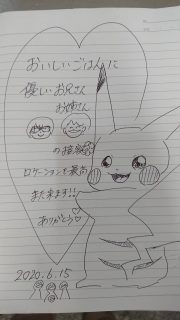 おいしいごはんに
優しいお兄さん
お姉さん
の接客
ロケーションも最高
また来ます!!
ありがとう♡
2020.6.15